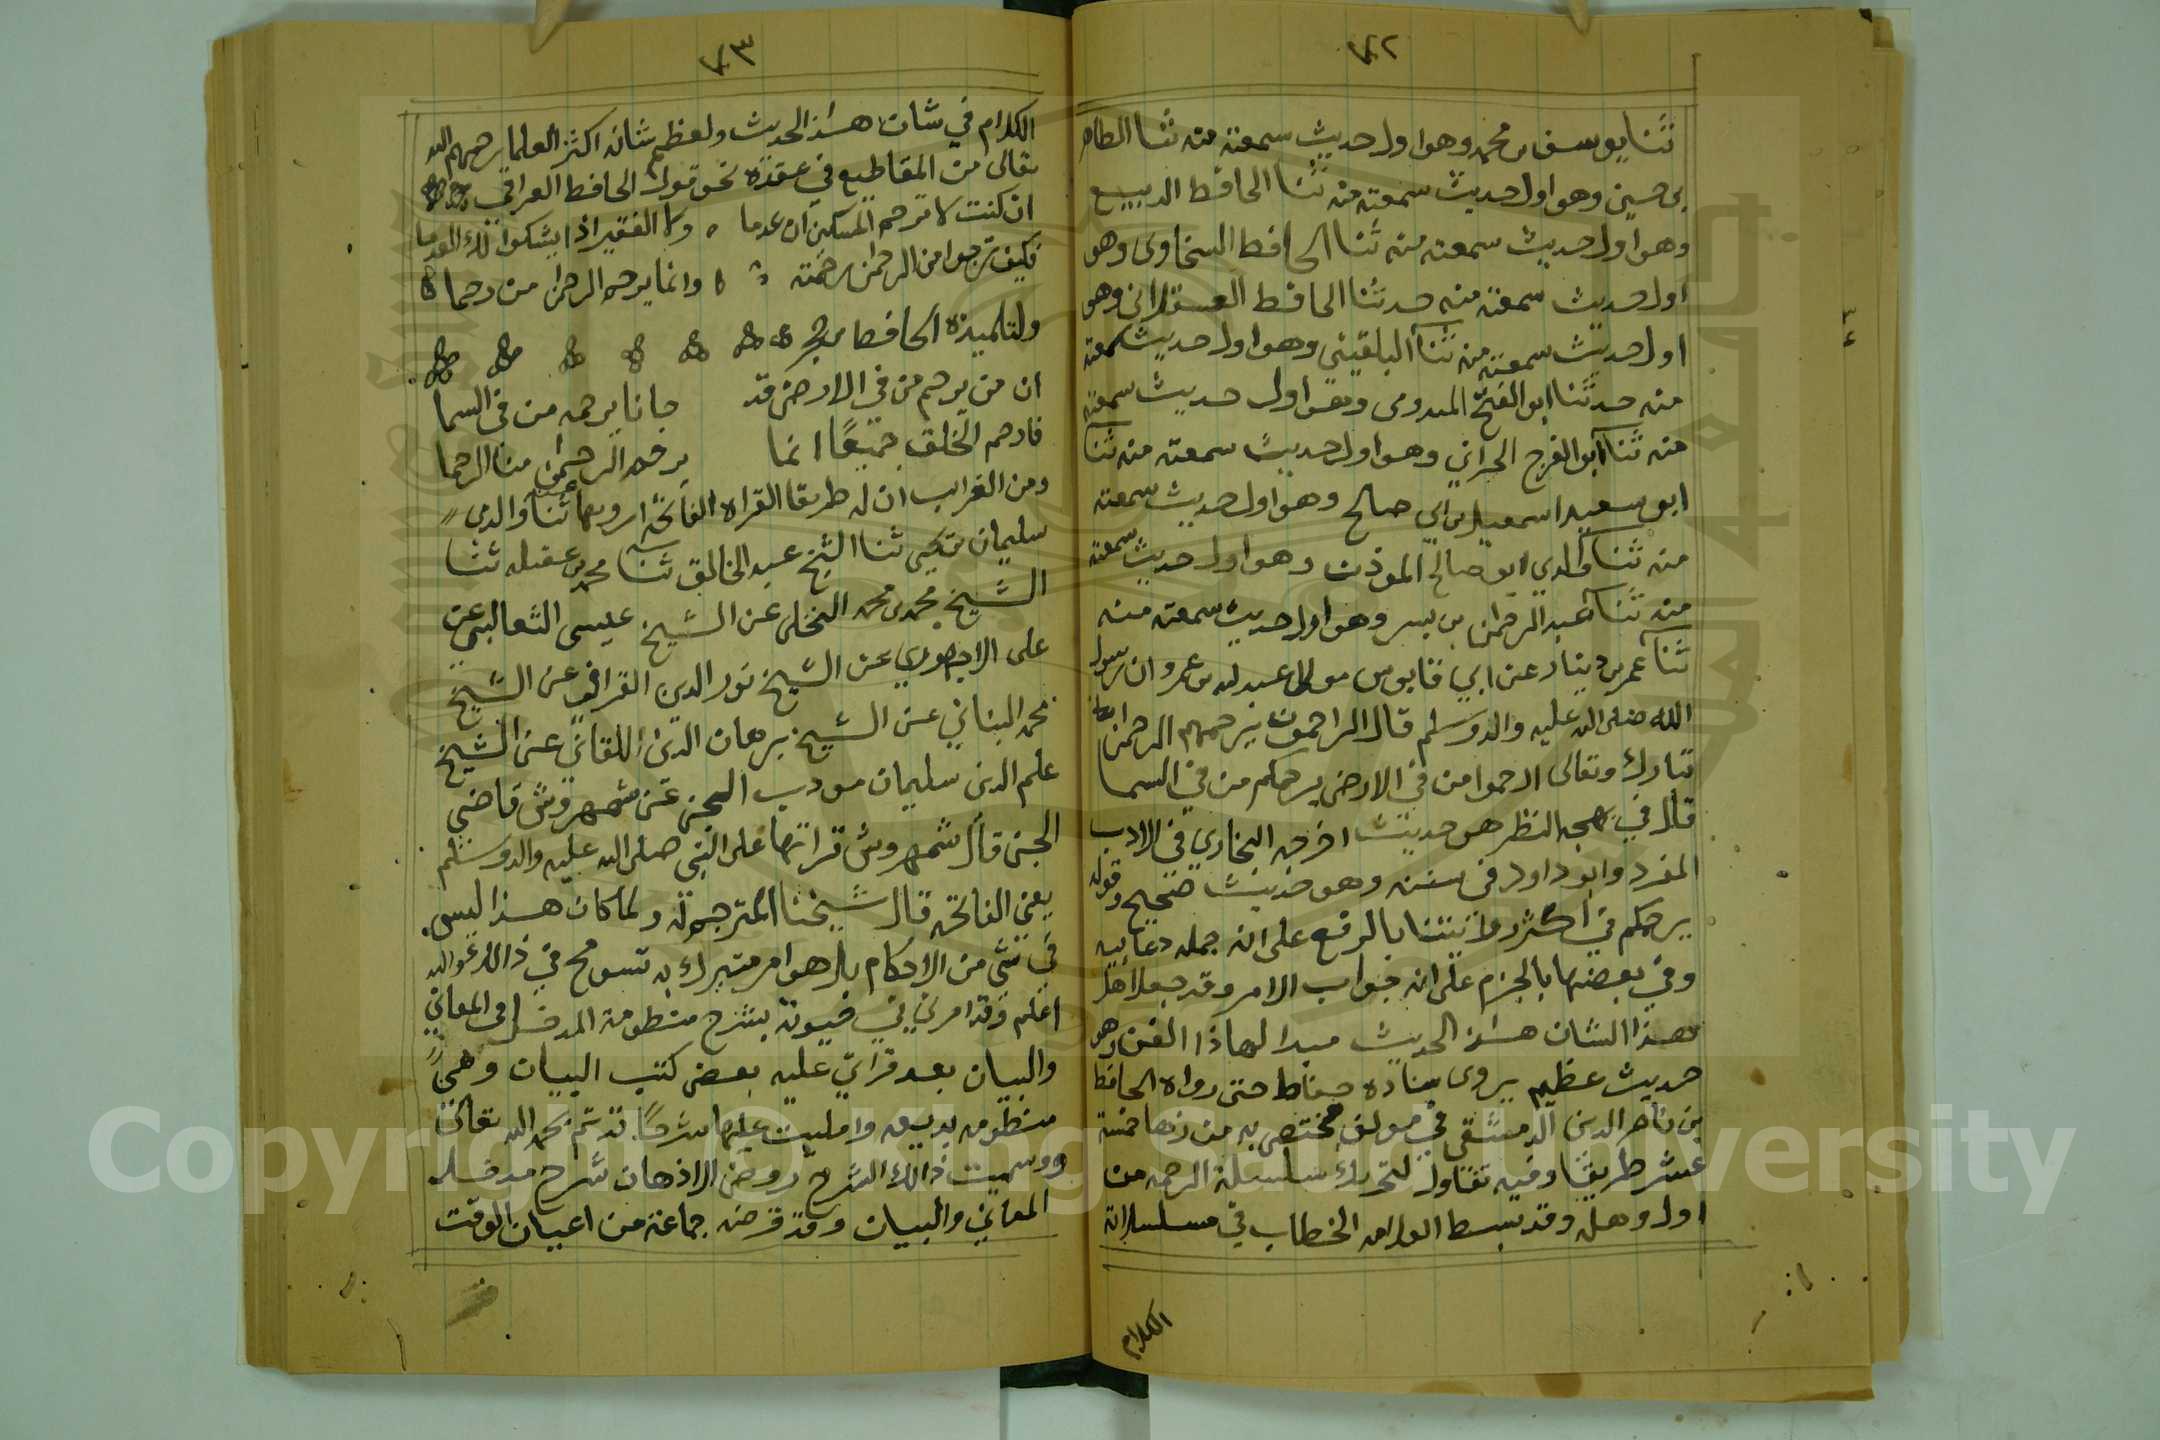 ٧٢
ثنا يوسف بن محمد وهو اول حديث سمعته منه ثنا الطاهر
بن حسين وهو اول حديث سمعته منه ثنا الحافظ الديبع
وهو اول حديث سمعته منه ثنا الحافظ السخاوي وهو
اول حديث سمعته منه حدثنا الحافظ العسقلاني وهو
اول حديث سمعته منه ثنا البلقيني وهو اول حديث سمعته
منه حدثنا ابو الفتح الميدومي وهو اول حديث سمعته
منه ثنا ابو الفرج الحراني وهو اول حديث سمعته منه ثنا
ابو سعيد اسمعيل بن ابي صالح وهو اول حديث سمعته
منه ثنا والدي ابو صالح الموذن وهو اول حديث سمعته
منه ثنا عبد الرحمن بن بسر وهو اول حديث سمعته منه
ثنا عمر بن دينار عن ابي قابوس مولى عبد الله بن عمرو ان رسول
الله صلى الله عليه واله وسلم قال الراحمون يرحمهم الرحمن
تبارك وتعالى ارحموا من في الارض يرحمكم من في السما
قال في بهجه النظر هو حديث اخرجه البخاري في الادب
المفرد وابو داود في سننه وهو حديث صحيح وقوله
يرحمكم في اكثر روايتنا بالرفع على انه جمله دعاييه
وفي بعضها بالجزم على انه جواب الامر وقد جعل اهل
هذا الشان هذا الحديث مبدا لهاذا الفن وهو
حديث عظيم يروى باسناده حفاظ حتى رواه الحافظ
بن ناصر الدين الدمشقي في مولف مختص به من زها خمسة
عشر طريقا وفيه تفاول لتحريك سلسلة الرحمه من
اول وهله وقد بسط العلامه الخطاب في مسلسلاته
الكلام
٧٣
الكلام في شان هذا الحديث ولعظم شانه اكثر العلما رحمهم الله
تعالى من المقاطيع في عقده نحو قول الحافظ العراقي
ان كنت لا ترحم المسكين ان عدما ولا الفقير اذا يشكوا لك العدما
فكيف ترجوا من الرحمن رحمته وانما يرحم الرحمن من رحما
ولتلميذه الحافظ بن حجر
ان من يرحم من في الارض قد جانا يرحمه من في السما
فارحم الخلق جميعا انما يرحم الرحمن منا الرحما
ومن الغرايب ان له طريقا لقراه الفاتحة ارويها عن ثنا والدي
سليمان بن يحيى ثنا الشيخ عبد الخالق ثنا محمد بن عقيله ثنا
الشيخ محمد بن محمد النخلي عن الشيخ عيسى الثعالبي عن
على الاجهوري عن الشيخ نور الدين القرافي عن الشيخ
محمد البناني عن الشيخ برهان الدين اللقاني عن الشيخ
علم الدين سليمان مودب الجن عن شمهروش قاضي
الجن قال شمهروش قراتها على النبي صلى الله عليه واله وسلم
يعني الفاتحة قال شيخنا المترجم له ولما كان هذا ليس
في شي من الاحكام بل هو امر متبرك به تسومح في ذالك والله
اعلم وقد امرني في حيوته بشرح منظومة المدخل في المعاني
والبيان بعد قراتي عليه بعض كتب البيان وهي
منظومه بديعه وامليت عليها شرحا قد تم بحمد الله تعالى
ووسميت ذالك الشرح روض الاذهان شرح مدخل
المعاني والبيان وقد قرضه جماعة من اعيان الوقت
Copyright © King Saud University